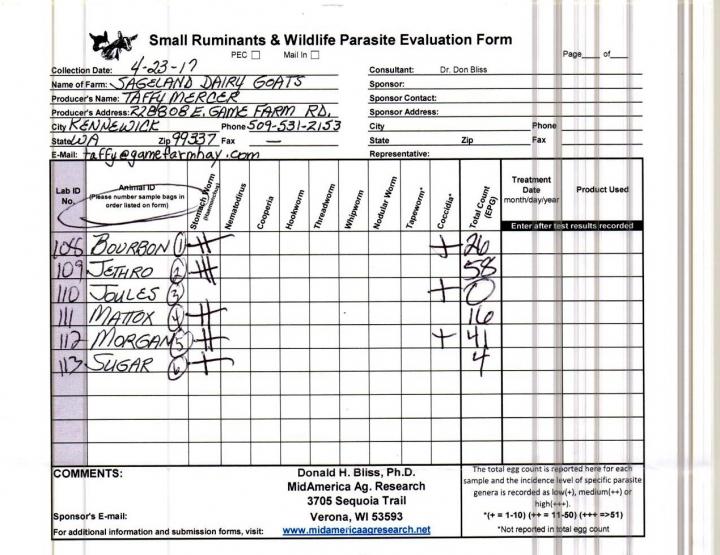 Small Ruminants & Wildlife Parasite Evaluation Form
PEC ☐ Mail In ☐ Page____ of____
Collection Date: 4-23-17 Consultant: Dr. Don Bliss
Name of Farm: SAGELAND DAIRY GOATS Sponsor:
Producer's Name: TAFFY MERCER Sponsor Contact:
Producer's Address: 228808 E. GAME FARM RD. Sponsor Address:
City KENNEWICK Phone 509-531-2153 City Phone
State WA Zip 99337 Fax — State Zip Fax
E-Mail: taffy@gamefarmhay.com Representative:
Lab ID No. Animal ID (Please number sample bags in order listed on form) Stomach Worm (Haemonchus) Nematodirus Cooperia Hookworm Threadworm Whipworm Nodular Worm Tapeworm* Coccidia* Total Count (EPG) Treatment Date month/day/year Product Used
Enter after test results recorded
108 BOURBON 1 ++ + 26
109 JETHRO 2 58
110 JOULES 3 + 0
111 MATTOX 4 ++ 16
112 MORGAN 5 ++ + 41
113 SUGAR 6 + 4
COMMENTS:
Donald H. Bliss, Ph.D.
MidAmerica Ag. Research
3705 Sequoia Trail
Verona, WI 53593
www.midamericaagresearch.net
Sponsor's E-mail:
For additional information and submission forms, visit:
The total egg count is reported here for each
sample and the incidence level of specific parasite
genera is recorded as low(+), medium(++) or
high(+++).
*(+ = 1-10) (++ = 11-50) (+++ =>51)
*Not reported in total egg count